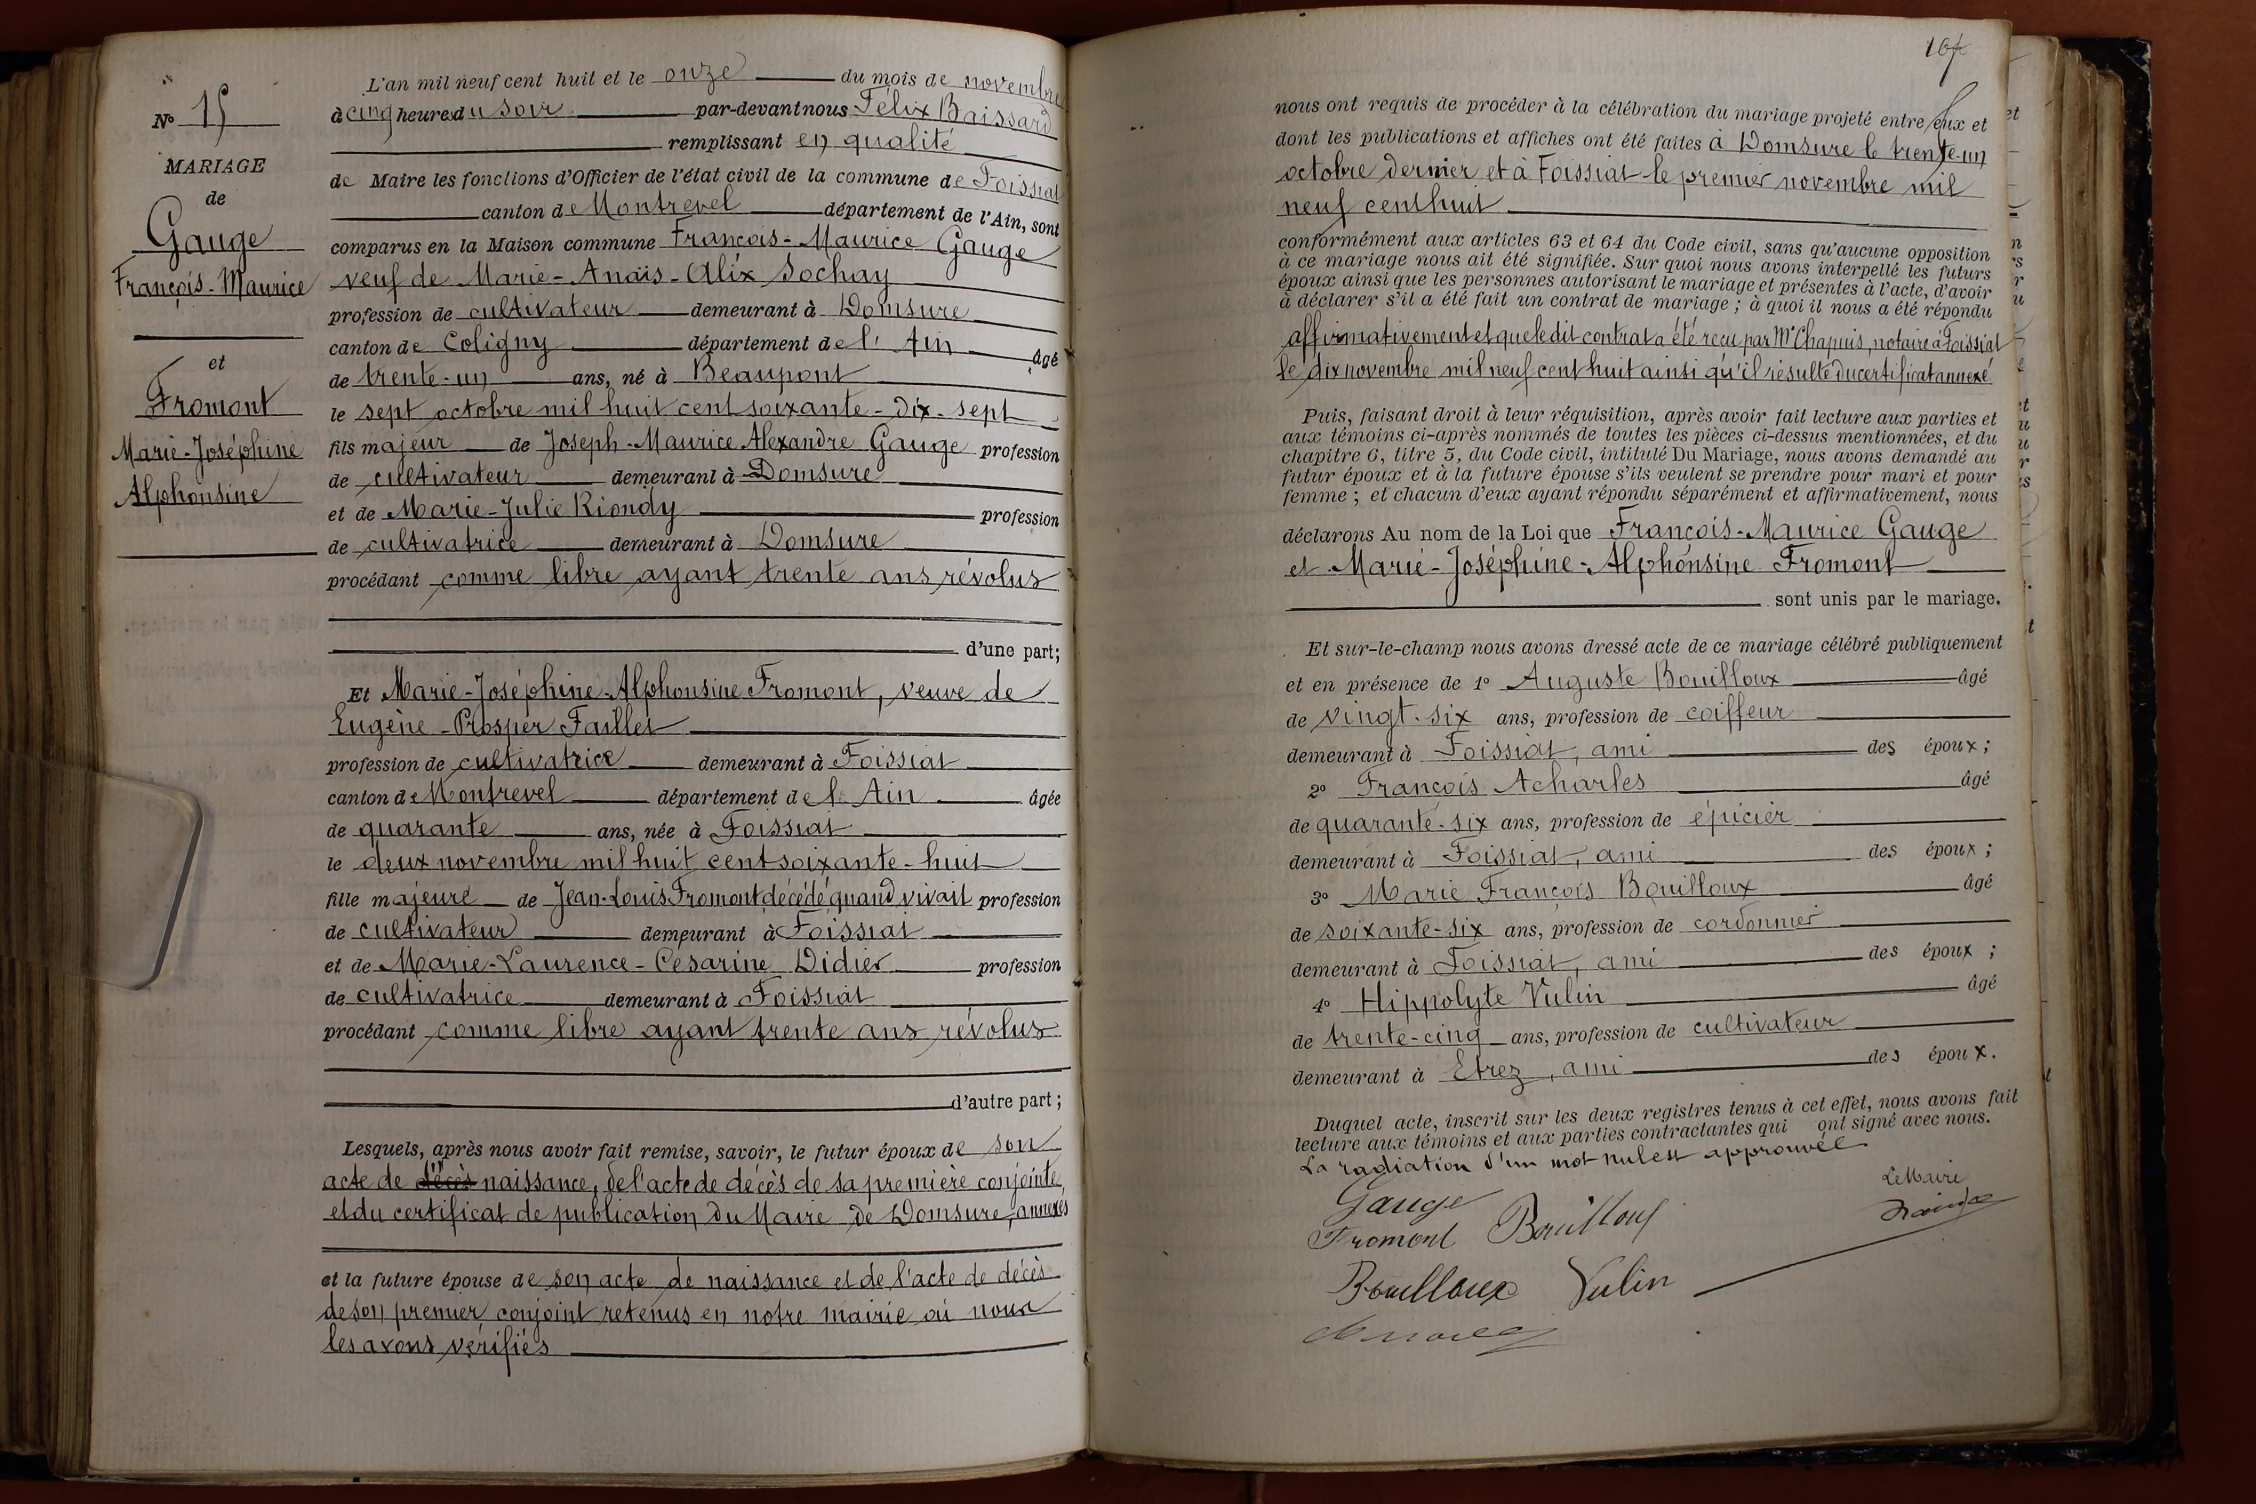 Nº 15
MARIAGE
de
Gauge
François-Maurice
et
Fromont
Marie-Joséphine
Alphonsine
L'an mil neuf cent huit et le onze du mois de novembre
à cinq heures du soir par-devant nous Félix Baissard
remplissant en qualité
de Maire les fonctions d'Officier de l'état civil de la commune de Foissiat
canton de Montrevel département de l'Ain, sont
comparus en la Maison commune François-Maurice Gauge
veuf de Marie-Anaïs-Alix Sochay
profession de cultivateur demeurant à Domsure
canton de Coligny département de l'Ain âgé
de trente-un ans, né à Beaupont
le sept octobre mil huit cent soixante-dix-sept
fils majeur de Joseph-Maurice Alexandre Gauge profession
de cultivateur demeurant à Domsure
et de Marie-Julie Riondy profession
de cultivatrice demeurant à Domsure
procédant comme libre ayant trente ans révolus
d'une part;
Et Marie-Joséphine-Alphonsine Fromont, veuve de
Eugène-Prosper Faillet
profession de cultivatrice demeurant à Foissiat
canton de Montrevel département de l'Ain âgée
de quarante ans, née à Foissiat
le deux novembre mil huit cent soixante-huit
fille majeure de Jean-Louis Fromont décédé quand vivait profession
de cultivateur demeurant à Foissiat
et de Marie-Laurence-Césarine Didier profession
de cultivatrice demeurant à Foissiat
procédant comme libre ayant trente ans révolus
d'autre part;
Lesquels, après nous avoir fait remise, savoir, le futur époux de son
acte de décès naissance, de l'acte de décès de sa première conjointe
et du certificat de publication du Maire de Domsure, annexés
et la future épouse de son acte de naissance et de l'acte de décès
de son premier conjoint retenus en notre mairie où nous
les avons vérifiés
nous ont requis de procéder à la célébration du mariage projeté entre eux et
dont les publications et affiches ont été faites à Domsure le trente-un
octobre dernier et à Foissiat le premier novembre mil
neuf cent huit
conformément aux articles 63 et 64 du Code civil, sans qu'aucune opposition
à ce mariage nous ait été signifiée. Sur quoi nous avons interpellé les futurs
époux ainsi que les personnes autorisant le mariage et présentes à l'acte, d'avoir
à déclarer s'il a été fait un contrat de mariage; à quoi il nous a été répondu
affirmativement et que le dit contrat a été reçu par Me Chapuis, notaire à Foissiat
le dix novembre mil neuf cent huit ainsi qu'il résulte du certificat annexé
Puis, faisant droit à leur réquisition, après avoir fait lecture aux parties et
aux témoins ci-après nommés de toutes les pièces ci-dessus mentionnées, et du
chapitre 6, titre 5, du Code civil, intitulé Du Mariage, nous avons demandé au
futur époux et à la future épouse s'ils veulent se prendre pour mari et pour
femme; et chacun d'eux ayant répondu séparément et affirmativement, nous
déclarons Au nom de la Loi que François-Maurice Gauge
et Marie-Joséphine-Alphonsine Fromont
sont unis par le mariage.
Et sur-le-champ nous avons dressé acte de ce mariage célébré publiquement
et en présence de 1º Auguste Bouilloux âgé
de vingt-six ans, profession de coiffeur
demeurant à Foissiat, ami des époux;
2º François Acharles âgé
de quarante-six ans, profession de épicier
demeurant à Foissiat, ami des époux;
3º Marie François Bouilloux âgé
de soixante-six ans, profession de cordonnier
demeurant à Foissiat, ami des époux;
4º Hippolyte Vulin âgé
de trente-cinq ans, profession de cultivateur
demeurant à Etrez, ami des époux.
Duquel acte, inscrit sur les deux registres tenus à cet effet, nous avons fait
lecture aux témoins et aux parties contractantes qui ont signé avec nous.
La radiation d'un mot nul est approuvée
Le Maire
Gauge
Fromont Bouilloux
Bouilloux Vulin